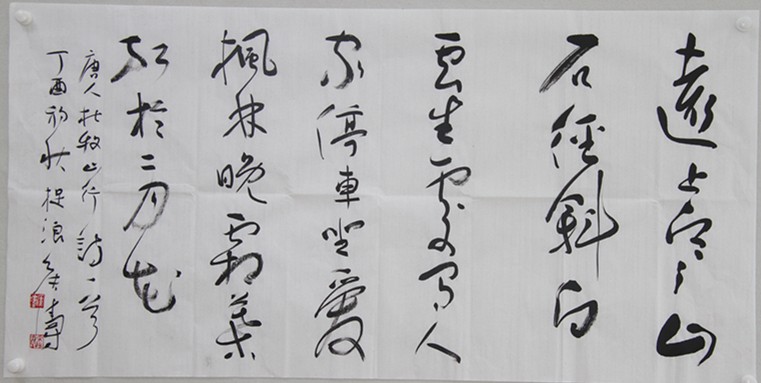 遠上寒山
石徑斜白
雲生處有人
家停車坐愛
楓林晚霜葉
紅於二月花
唐人杜牧山行詩一首
丁酉初秋